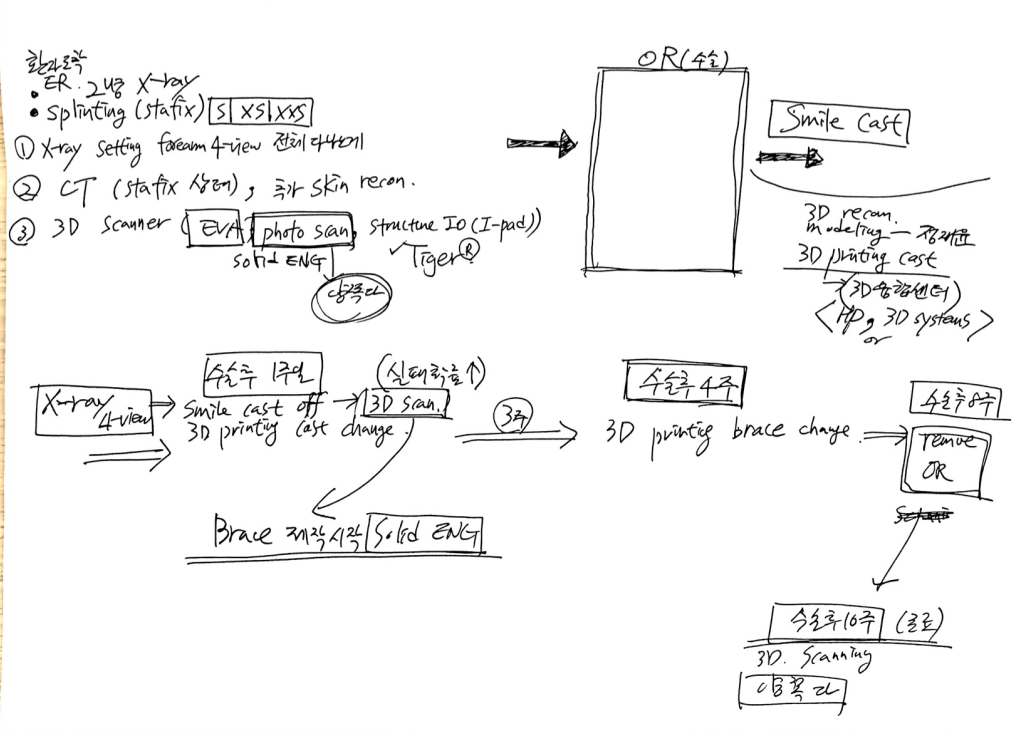 환자도착
• ER. 그냥 X-ray
• Splinting (Stafix) S XS XXS
① X-ray setting forearm 4-view 전체 다나오게
② CT (Stafix 상태), 추가 skin recon.
③ 3D scanner (EVA, photo scan, structure IO (I-pad))
solid ENG ✓Tiger®
양쪽다
OR (수술)
Smile Cast
3D recon.
modeling
3D printing cast
→ (3D융합센터)
<HP, or 3D systems>
X-ray 4-view
수술후 1주일
Smile cast off
3D printing cast change.
(실패확률↑)
3D scan.
3주
Brace 제작시작 Solid ENG
수술후 4주
3D printing brace change.
수술후 8주
remove
OR
수술후 10주 (종료)
3D. Scanning
양쪽 다